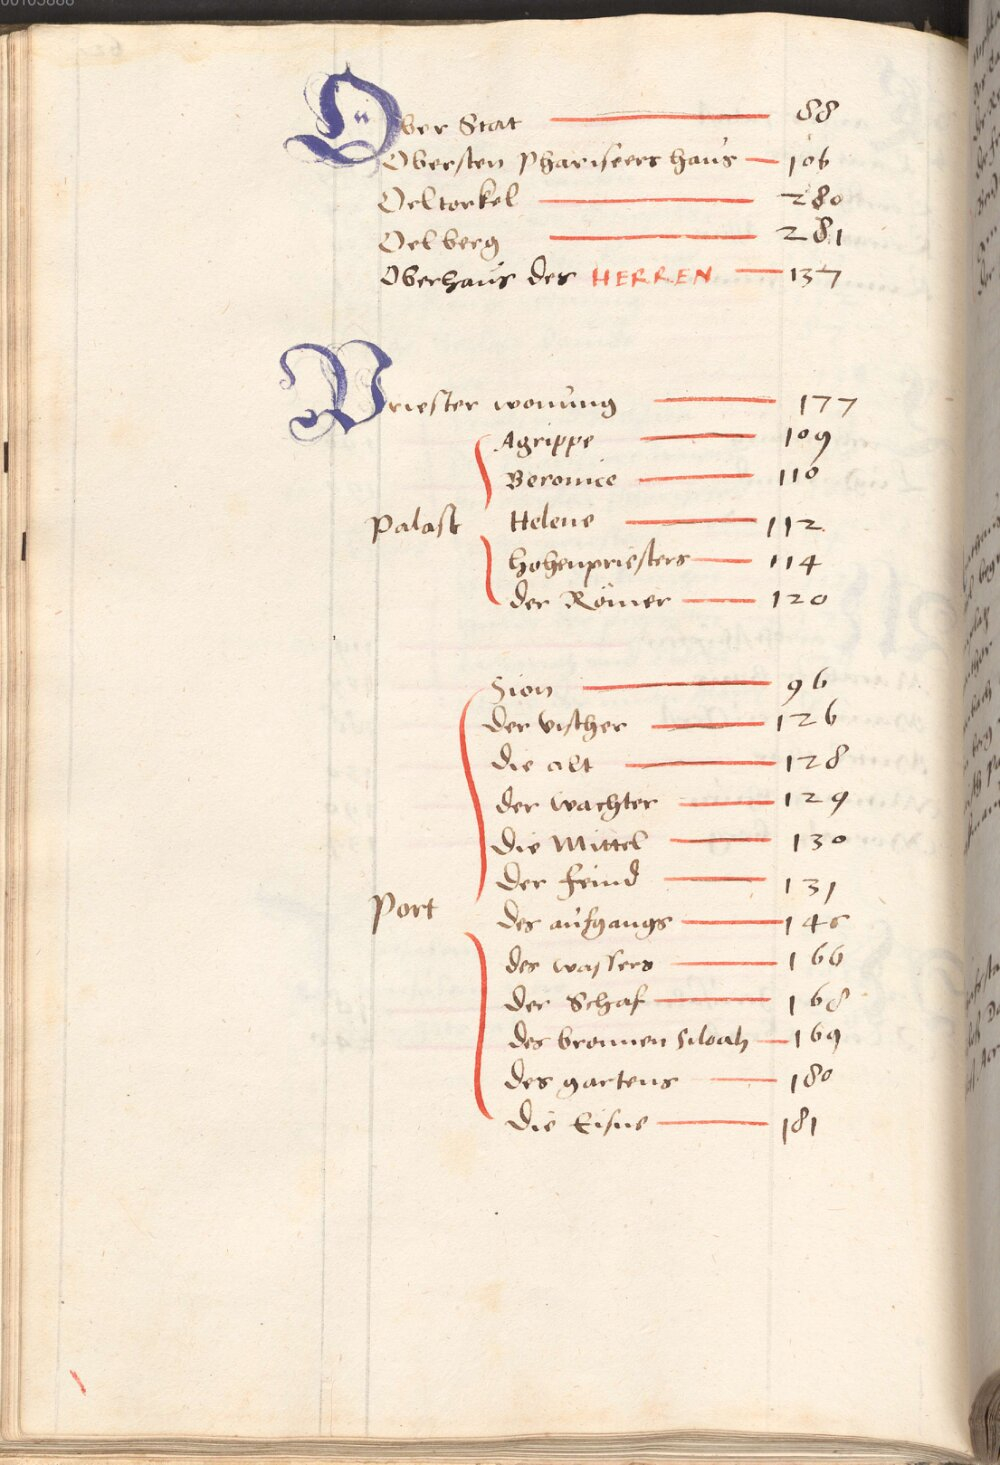 Ober Stat 88
Obersten Phariseers haus 106
Oeltorkel 280
Oelberg 281
Oberhaus des HERREN 137
Priester wonung 177
Agrippe 109
Beronice 110
Palast Helene 112
hohenpriesters 114
der Römer 120
Sion 96
der vischer 126
die alt 128
der wachter 129
die Mittel 130
der feind 131
Port des aufgangs 146
des wassers 166
der Schaf 168
des bronnen Siloah 169
des gartens 180
die Eisne 181